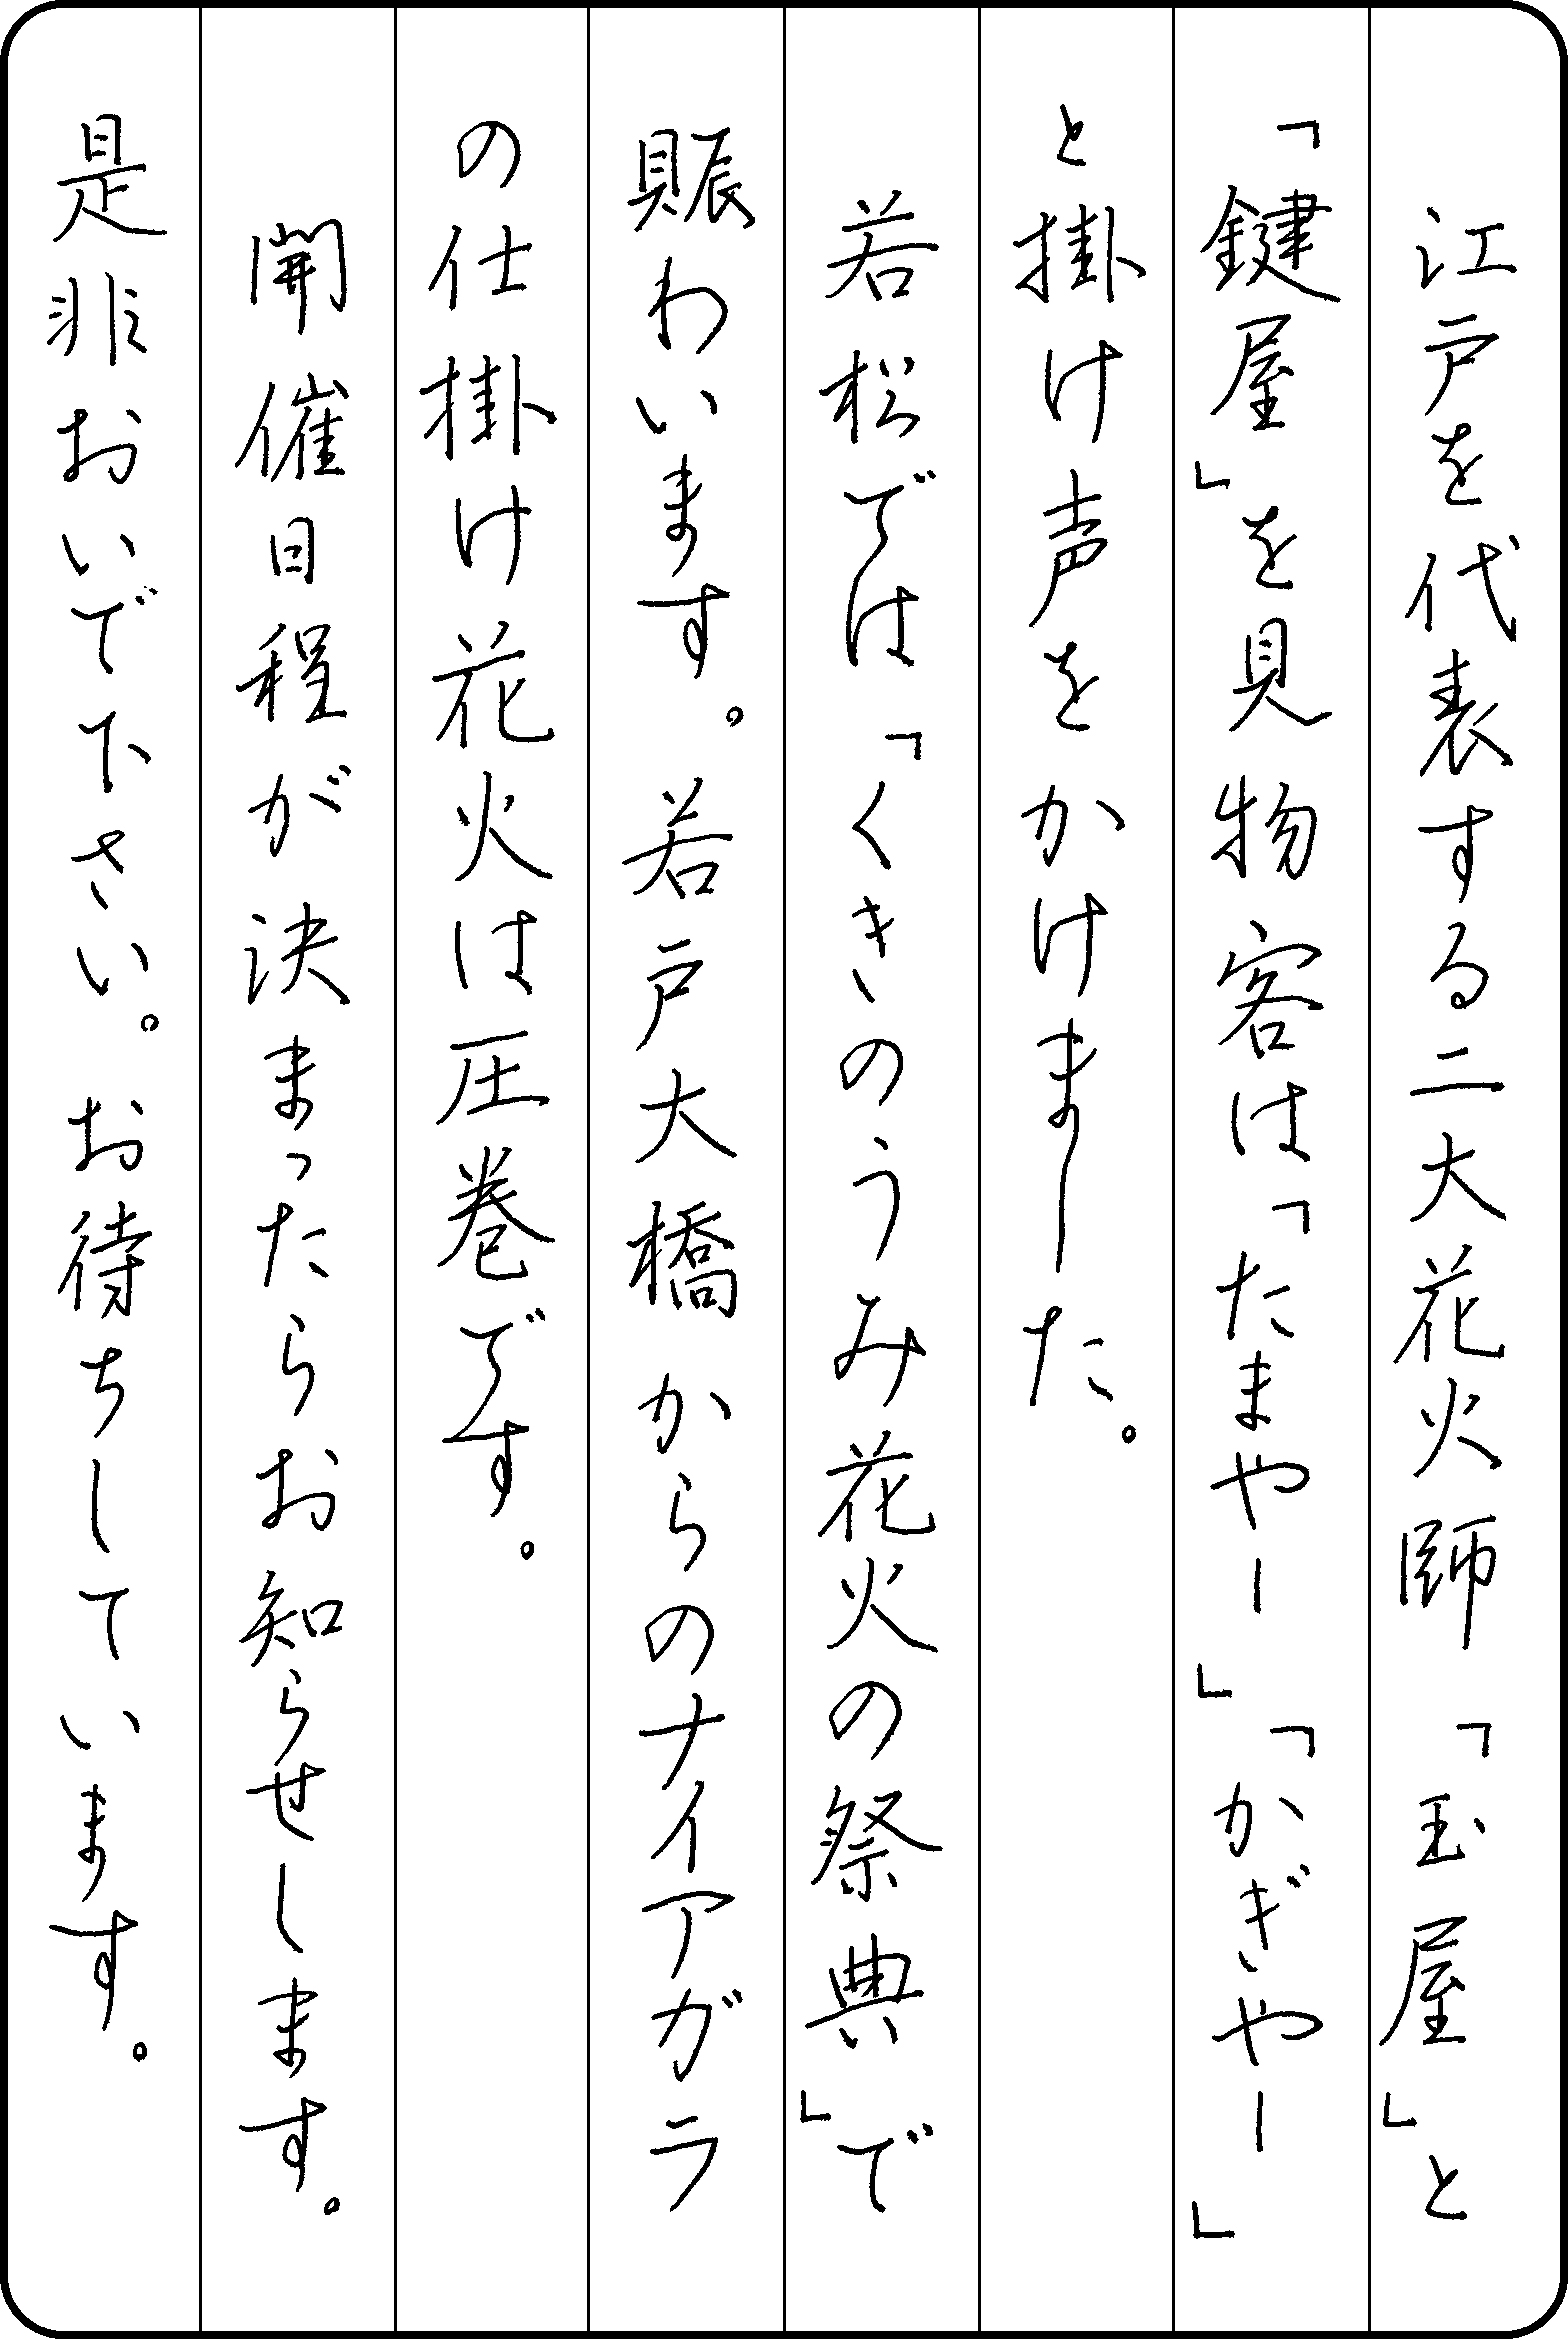 江戸を代表する二大花火師「玉屋」と
「鍵屋」を見物客は「たまやー」「かぎやー」
と掛け声をかけました。
若松では「くきのうみ花火の祭典」で
賑わいます。若戸大橋からのナイアガラ
の仕掛け花火は圧巻です。
開催日程が決まったらお知らせします。
是非おいで下さい。お待ちしています。